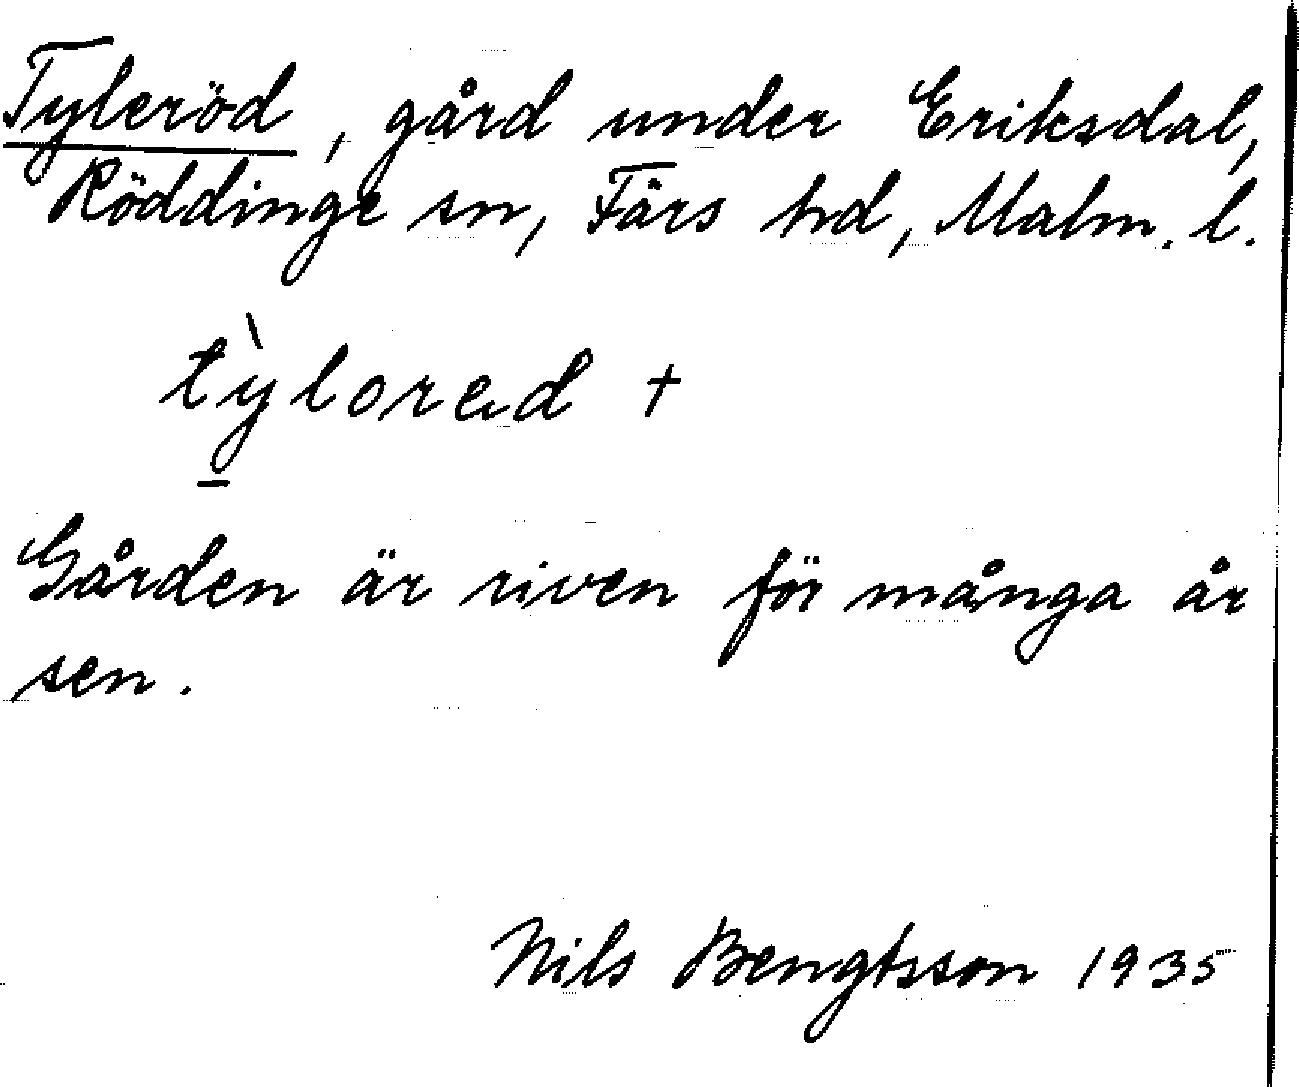 Tyleröd, gård under Eriksdal,
Röddinge sn, Färs hd, Malm. l.
tỳlored +
Gården är riven för många år
sen.
Nils Bengtsson 1935